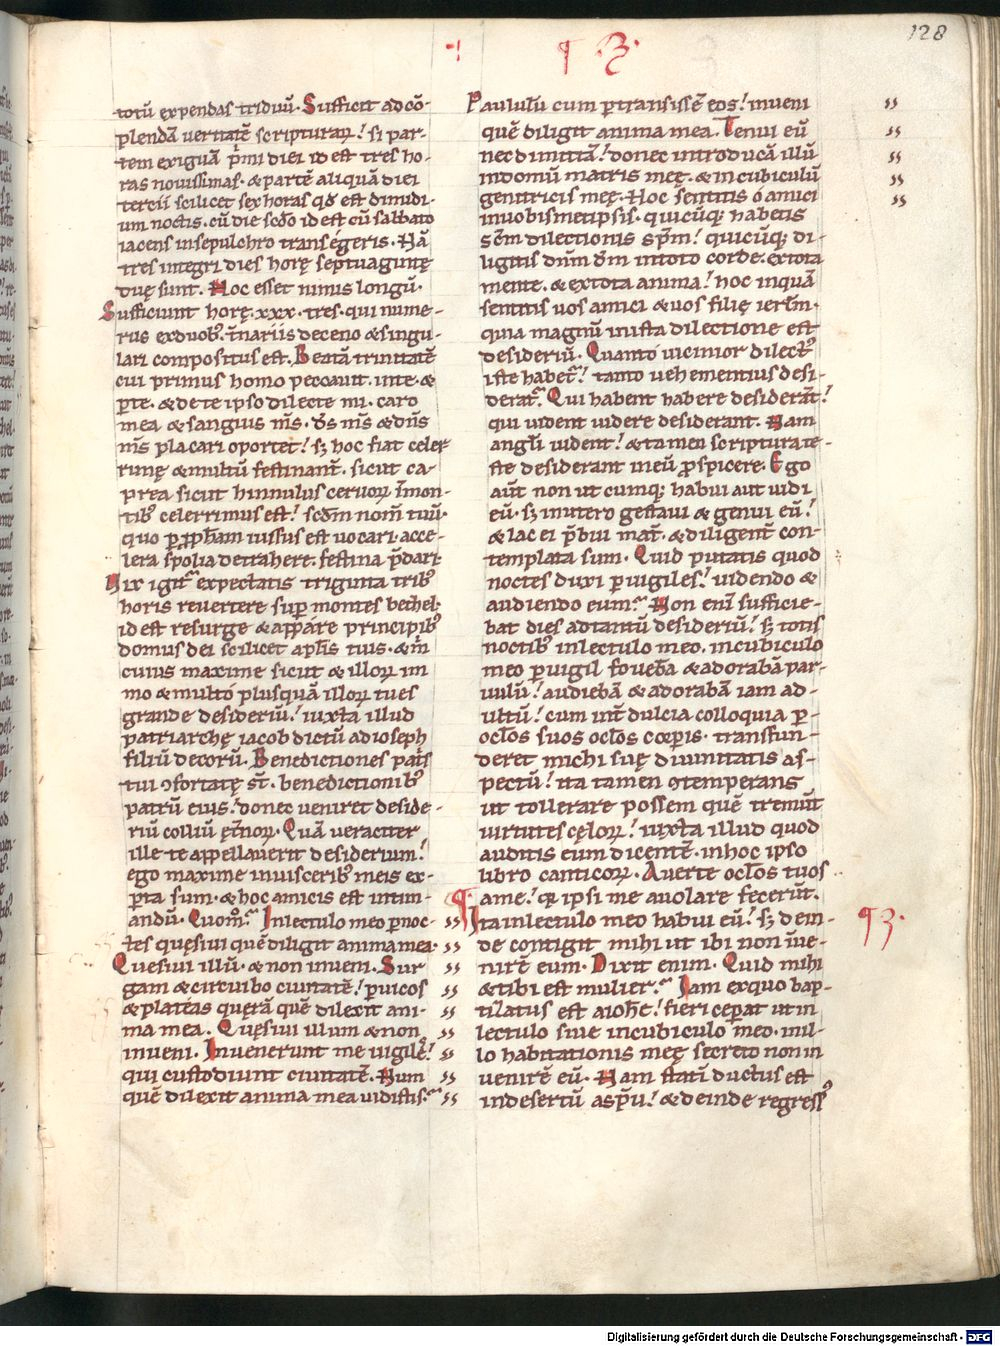 128
·⁊· ¶ ·3·
totū expendas triduū. Sufficit ad cō-
plendā ueritatē scripturarꝝ! si par-
tem exiguā p̄mi diei id est tres ho-
ras nouissimas. & partē aliquā diei
tercii scilicet sex horas qđ est dimidi-
um noctis. cū die scđo id est cū sabbato
iacens in sepulchro transegeris. Nā
tres integri dies horę septuagintę
duę sunt. Hoc esset nimis longū.
Sufficiunt horę .xxx. tres. qui nume-
rus ex duobꝰ t̄nariis deceno & singu-
lari compositus est. Beatā trinitatē
cui primus homo peccauit. in te. &
ꝑ te. & de te ipso dilecte mi. caro
mea & sanguis nr̄s. ds̄ nr̄s & dn̄s
nr̄s placari oportet! sꝫ hoc fiat celer-
rime & multū festinant̄. sicut ca-
prea sicut hinnulus ceruorꝝ ī mon-
tibꝰ celerrimus est! scđm nom̄ tuū.
quo ꝑ ꝓph̄am iussus est uocari. acce-
lera spolia detrahere. festina p̄dari.
Vix igit᷑ expectatis triginta tribꝰ
horis reuertere suꝑ montes bethel.
id est resurge & appare principibꝰ
domus dei scilicet apl̄is tuis. & m̄
cuius maxime sicut & illorꝝ im
mo & multo plusquā illorꝝ tu es
grande desideriū! iuxta illud
patriarchę iacob dictū ad ioseph
filiū decorū. Benedictiones pat̄s
tui ꝯfortatę st̄. benedictionibꝰ
patrū eius! donec ueniret deside-
riū colliū ęt̄norꝝ. Quā ueraciter
ille te appellauerit desiderium!
ego maxime in uisceribꝰ meis ex-
ꝑta sum. & hoc amicis est intim-
andū. Quom̊? In lectulo meo ꝑ noc-
tes quęsiui quē diligit anima mea.
Quesiui illū. & non inueni. Sur
gam & circuibo ciuitatē! ꝑ uicos
& plateas quęrā quē dilexit ani-
ma mea. Quęsiui illum & non
inueni. Inuenerunt me uigilęs!
qui custodiunt ciuitatē. Num
quē dilexit anima mea uidistis?
Paululū cum ꝑtransissē eos! inueni
quē diligit anima mea. Tenui eū
nec dimittā! donec introducā illū
in domū matris meę. & in cubiculū
genitricis meę. Hoc sentitis o amici
in uobismetipsis. quicūqꝫ habetis
sc̄m dilectionis sp̄m! quicūqꝫ di-
ligitis dn̄m dm̄ in toto corde. ex tota
mente. & ex tota anima! hoc inquā
sentitis uos amici & uos filię ierłm̄.
quia magnū in ista dilectione est
desideriū. Quanto uicinior dilectꝰ
iste habet᷑! tanto uehementius desi-
derat᷑. Qui habent habere desiderāt!
qui uident uidere desiderant. Nam
angl̄i uident! & tamen scriptura te-
ste desiderant in eū ꝓspicere. Ego
aūt non ut cumqꝫ habui aut uidi
eū. sꝫ in utero gestaui & genui eū!
& lac ei p̄bui mat̄. & diligent̄ con-
templata sum. Quid putatis quod
noctes duxi ꝑuigiles! uidendo &
audiendo eum? Non eni sufficie-
bat dies ad tantū desideriū! sꝫ totis
noctibꝰ in lectulo meo. in cubiculo
meo ꝑuigil foueb̄a & adorabā par-
uulū! audiebā & adorabā iam ad-
ultū! cum int̄ dulcia colloquia ꝑ
ocl̄os suos ocl̄os corꝑis. transfun-
deret michi suę diuinitatis as-
pectū! ita tamen ꝯtemperans
ut tollerare possem quē tremūt
uirtutes cęlorꝝ! iuxta illud quod
auditis eum dicentē. in hoc ipso
libro canticorꝝ. Auerte ocl̄os tuos
a me! qꝛ ipsi me auolare fecerūt.
Ita in lectulo meo habui eū! sꝫ dein-
de contigit mihi ut ibi non īue-
nirē eum. Dixit enim. Quid mihi
& tibi est mulier? Iam ex quo bap-
tizatus est a ioh̄e! fieri ceperat ut in
lectulo siue in cubiculo meo. in il-
lo habitationis meę secreto non in
uenirē eū. Nam statī ductus est
in desertū a sp̄u! & deinde regressꝰ
¶3·
Digitalisierung gefördert durch die Deutsche Forschungsgemeinschaft · DFG